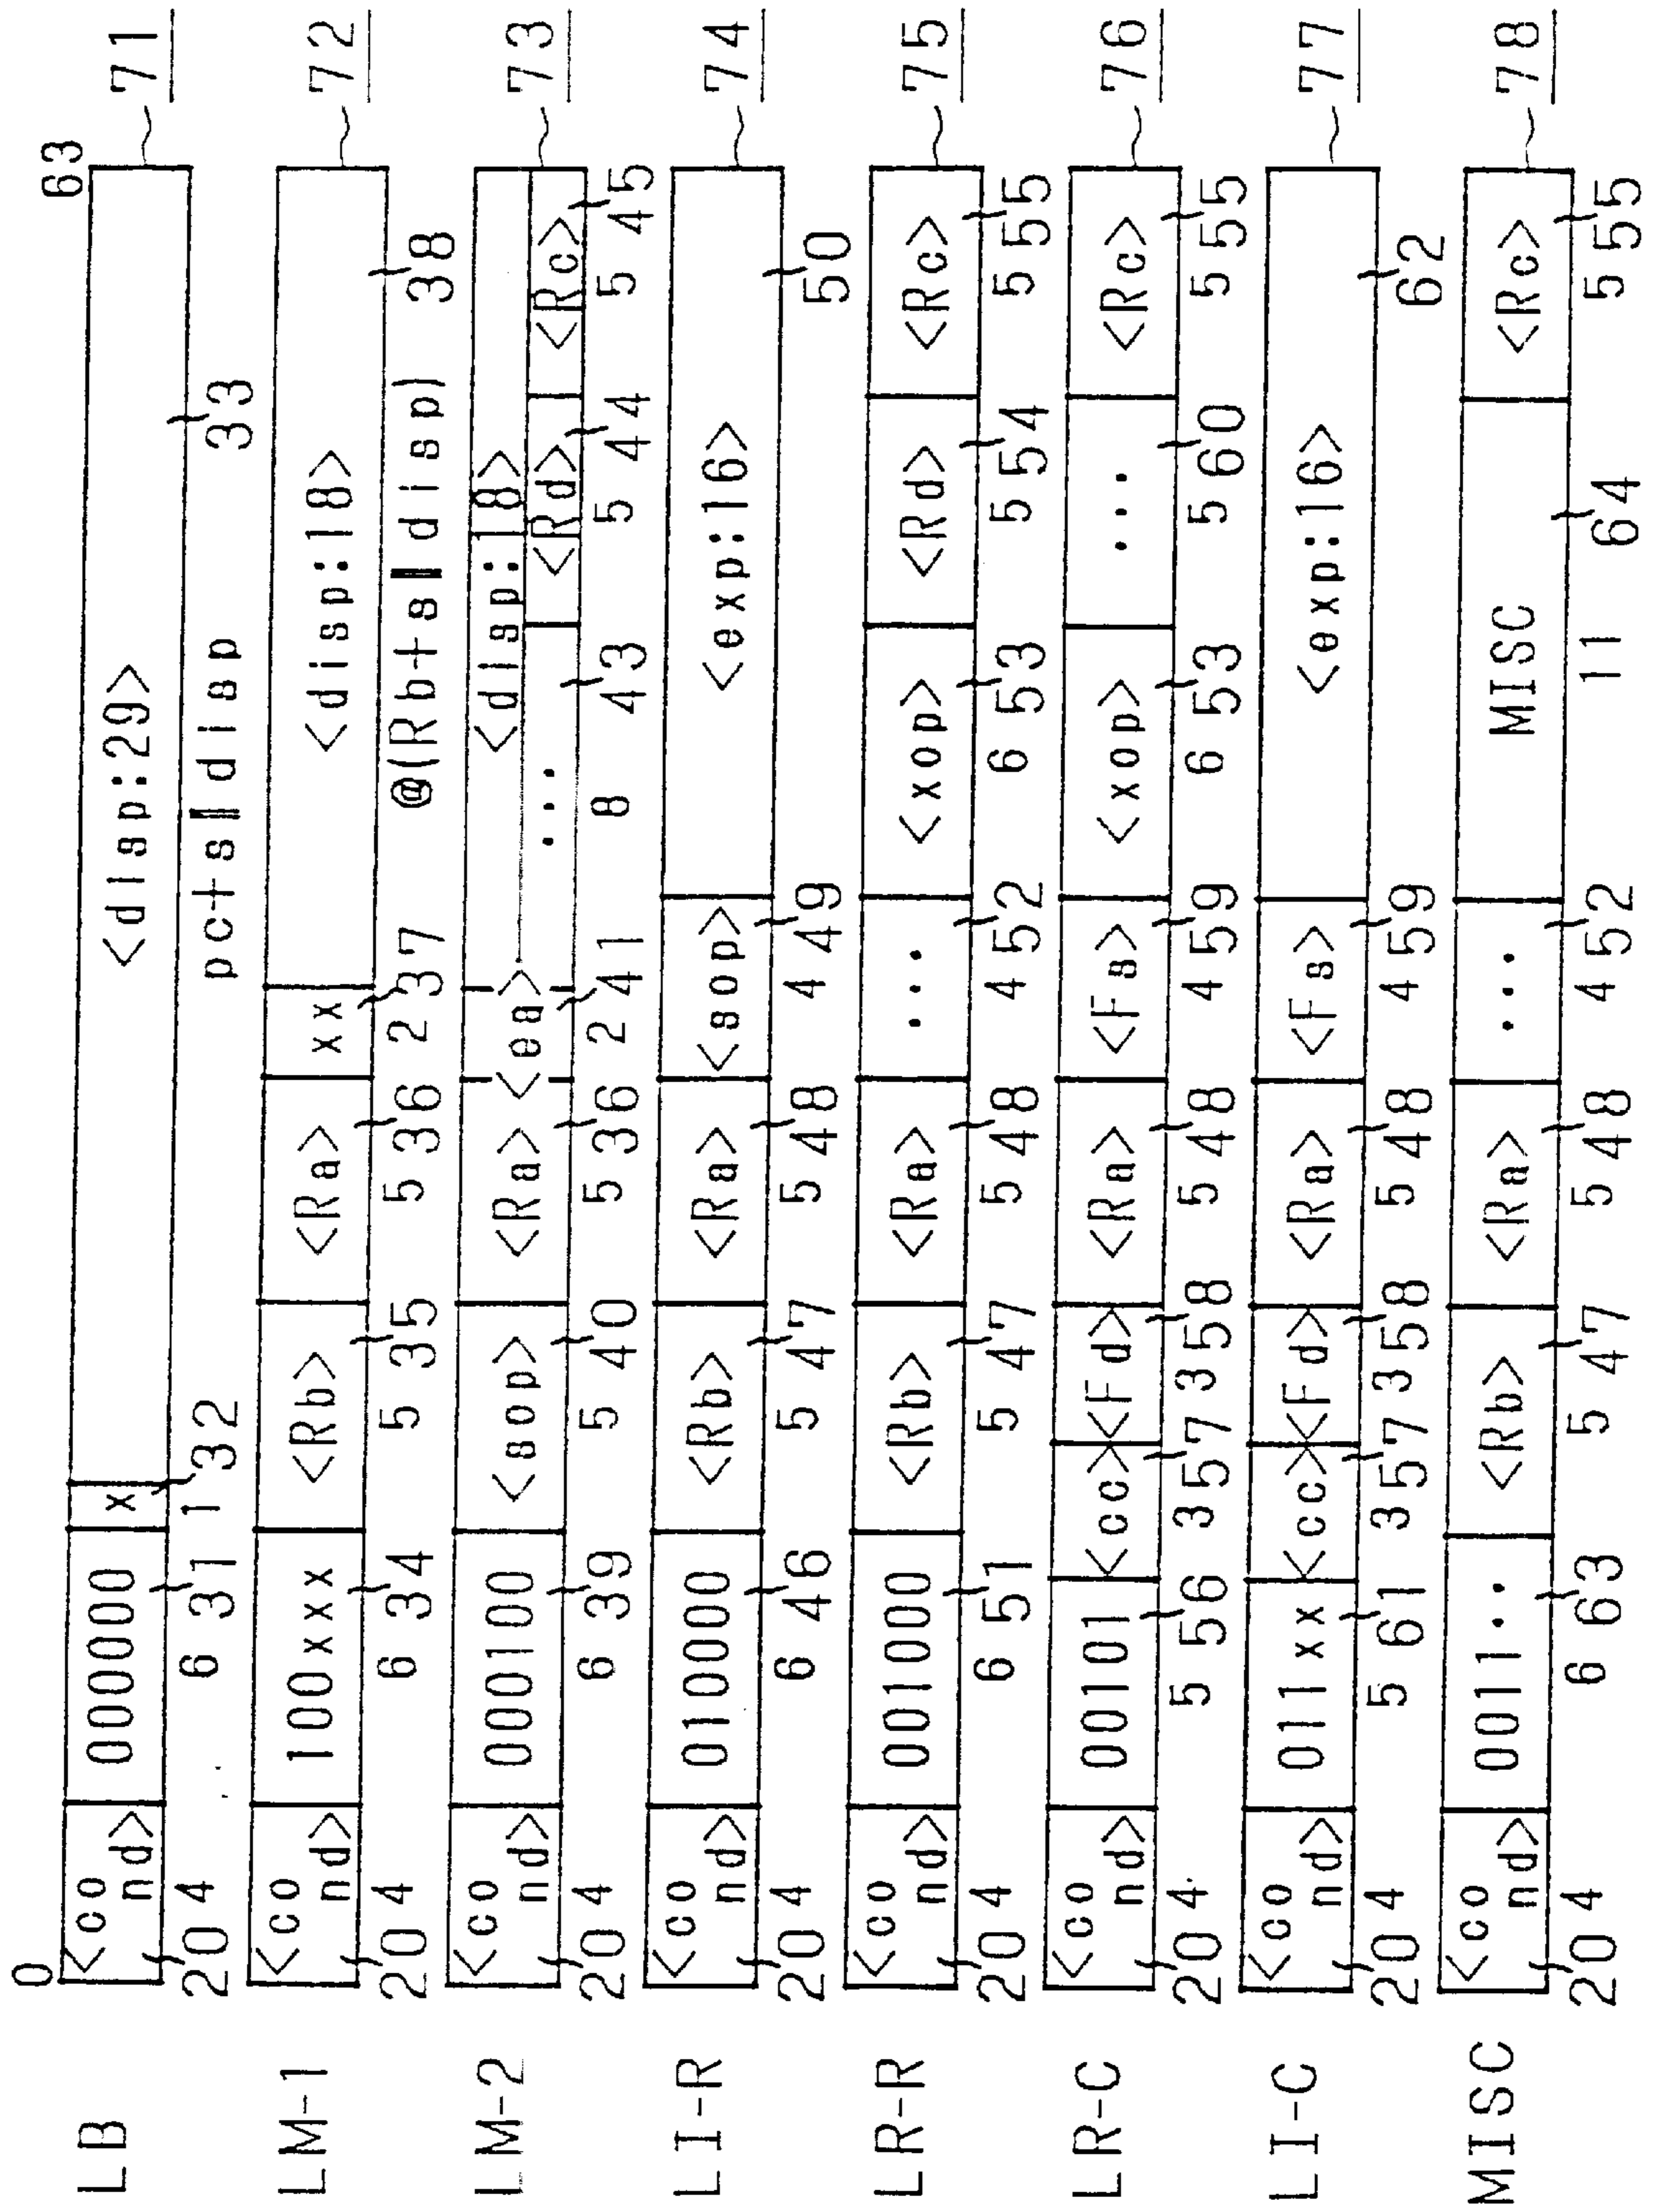 0 63
LB <co nd> 000000 x <disp:29> 71
20 4 6 31 1 32 33
pc+s‖disp
LM-1 <co nd> 100xxx <Rb> <Ra> xx <disp:18> 72
20 4 6 34 5 35 5 36 2 37 @(Rb+s‖disp) 38
LM-2 <co nd> 000100 <sop> <Ra> <ea> <disp:18> 73
... <Rd> <Rc>
20 4 6 39 5 40 5 36 2 41 8 43 5 44 5 45
LI-R <co nd> 010000 <Rb> <Ra> <sop> <exp:16> 74
20 4 6 46 5 47 5 48 4 49 50
LR-R <co nd> 001000 <Rb> <Ra> ... <xop> <Rd> <Rc> 75
20 4 6 51 5 47 5 48 4 52 6 53 5 54 5 55
LR-C <co nd> 00101 <cc> <Fd> <Ra> <Fs> <xop> ... <Rc> 76
20 4 5 56 3 57 3 58 5 48 4 59 6 53 5 60 5 55
LI-C <co nd> 011xx <cc> <Fd> <Ra> <Fs> <exp:16> 77
20 4 5 61 3 57 3 58 5 48 4 59 62
MISC <co nd> 0011.. <Rb> <Ra> ... MISC <Rc> 78
20 4 6 63 5 47 5 48 4 52 11 64 5 55